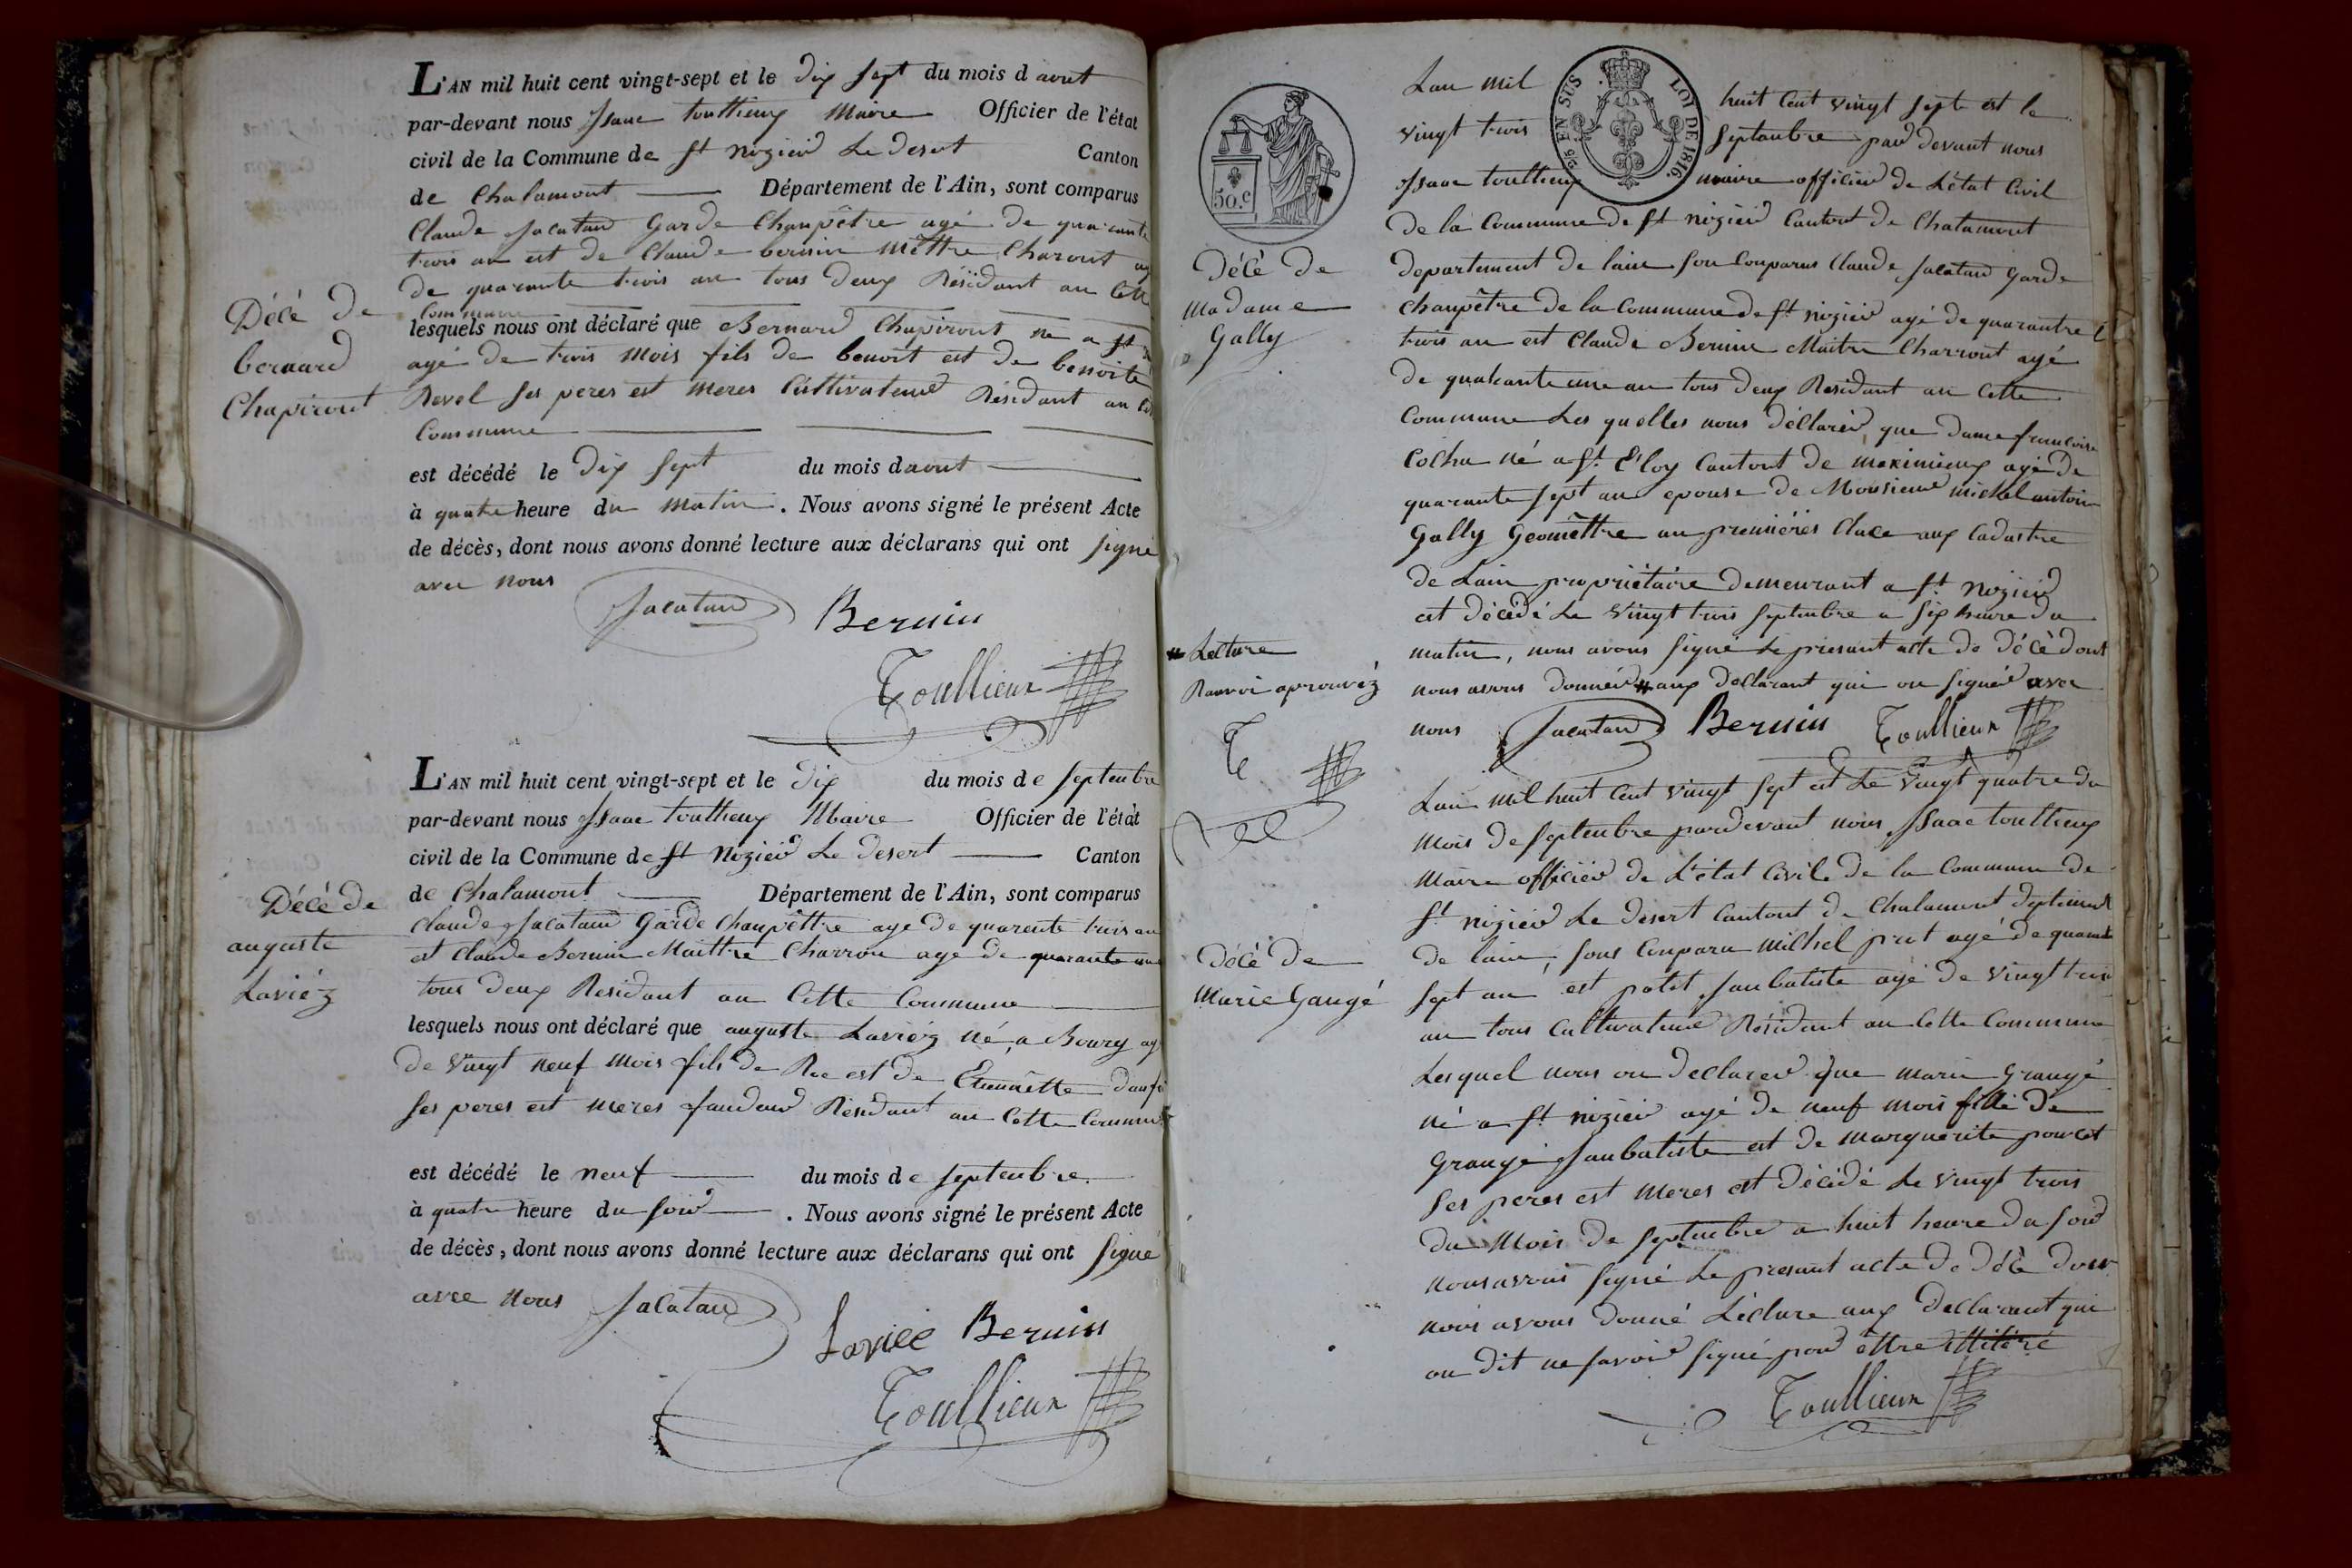 L'AN mil huit cent vingt-sept et le dix sept du mois d aout
par-devant nous Isaac toullieux Maire Officier de l'état
civil de la Commune de St nizier Le desert Canton
de Chalamont Département de l'Ain, sont comparus
Claude Jacatard Garde Chanpêtre agé de quarante
trois an est de Claude bernin Mêttre Charont
de quarante trois an tous deux Résidant an Cette
Commune
Décé de
bernard
Chapiront
lesquels nous ont déclaré que Bernard Chapiront né a St
agé de trois mois fils de benoit est de benoite
Revel Ses peres est meres Cultivateur Résidant an
Commune
est décédé le dix sept du mois daout
à quatre heure du matin. Nous avons signé le présent Acte
de décès, dont nous avons donné lecture aux déclarans qui ont signé
avec nous
Jacatard Bernin
Toullieux
L'AN mil huit cent vingt-sept et le dix du mois de septenbre
par-devant nous Isaac toullieux Maire Officier de l'état
civil de la Commune de St Nizier Le desert Canton
de Chalamont Département de l'Ain, sont comparus
Décé de
auguste
Laviéz
Claude Jacatard Garde Chanpêttre age de quarente trois an
et Claude Bernin Maittre Charron age de quarante une
tous deux Residant an Cette Commune
lesquels nous ont déclaré que auguste Laviéz né a Bourg
de vingt neuf mois fils de est de Etiennette
Ses peres est meres Résidant an Cette Commune
est décédé le neuf du mois de septenbre
à quatre heure du soir. Nous avons signé le présent Acte
de décès, dont nous avons donné lecture aux déclarans qui ont Signé
avec nous Jacatard
Laviéé Bernin
Toullieux
50.c
25 EN SUS LOI DE 1816.
Lan mil huit Cent vingt sept est le
vingt trois Septanbre par devant nous
Isaac toullieux maire officier de Létat Civil
de la Commune de St nizier Cantont de Chalamont
Décé de
Madame
Gally
departement de lain son Conparus Claude Jacatard Garde
Chanpêtre de la Commune de St nizier agé de quarantre
trois an est Claude Bernin Maitre Charront agé
de quatante une an tous deux Residant an Cette
Commune Les quelles nous déclarér que dame francoise
Cocha né a St Eloy Cantont de meximieux agé de
quarante sept an epouse de Monsieur michel antoin
Gally Geomêttre au premiéres Clace aux Cadastre
de Lain propriétaire demeurant a St Nizier
est décédé Le vingt trois septenbre a six heure du
matin, nous avons signé Le présant acte de décé dont
nous avons donnér # aux déclarant qui on signér avec
nous Jacatard Bernin Toullieux
# Lecture
Ranvoi aprouvéz
T
Lan mil huit Cent vingt sept est Le vingt quatre du
mois de septenbre pardevant nous Isaac toullieux
Maire officier de L'état Civile de la Commune de
St nizier Le desert Cantont de Chalamont
Décé de
Marie Gangé
de lain, sons Conparu Milhel prat agé de quarante
sept an est potet Janbatiste agé de vingt trois
an tous Cultivateur Résidant an Cette Commune
Lesquel nous on declarer que marie Grangé
né a St nizier agé de neuf mois fille de
Grangé Janbatiste est de marguérite poncet
Ses peres est meres est décédé Le vingt trois
du Mois de septenbre a huit heure du soir
nous avons signé Le presant acte de décé dont
nous avons donné Lécture aux declarant qui
on dit ne savoir signé pour êttre illitéré
Toullieux